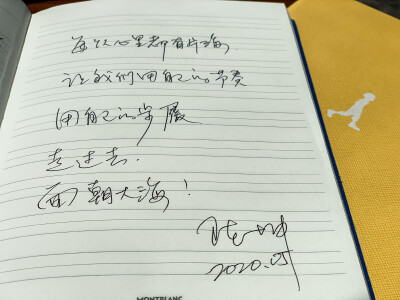 每个人心里都有片海
让我们用自己的节奏
用自己的步履
走过去.
面朝大海!
陈坤
2020.05
MONTBLANC